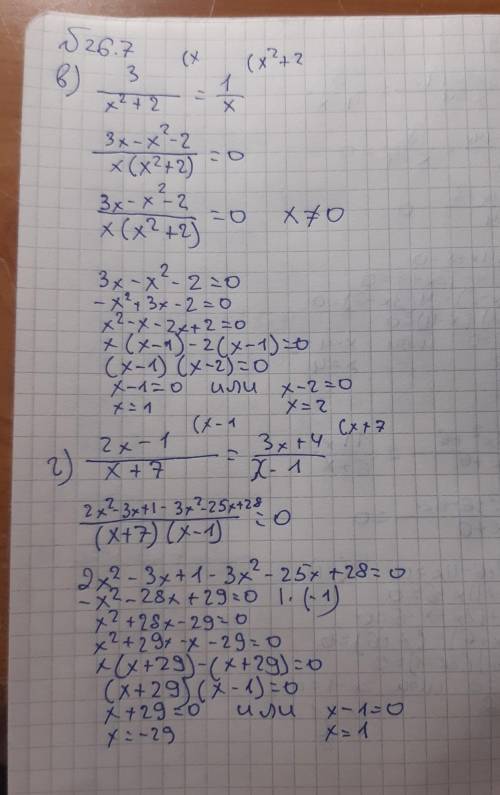 №26.7
в) 3/(x²+2) (x = 1/x (x²+2
(3x-x²-2)/(x(x²+2)) = 0
(3x-x²-2)/(x(x²+2)) = 0 x≠0
3x-x²-2=0
-x²+3x-2=0
x²-x-2x+2=0
x(x-1)-2(x-1)=0
(x-1)(x-2)=0
x-1=0 или x-2=0
x=1 x=2
г) (2x-1)/(x+7) (x-1 = (3x+4)/(x-1) (x+7
(2x²-3x+1-3x²-25x+28)/((x+7)(x-1)) = 0
2x²-3x+1-3x²-25x+28=0
-x²-28x+29=0 |·(-1)
x²+28x-29=0
x²+29x-x-29=0
x(x+29)-(x+29)=0
(x+29)(x-1)=0
x+29=0 или x-1=0
x=-29 x=1